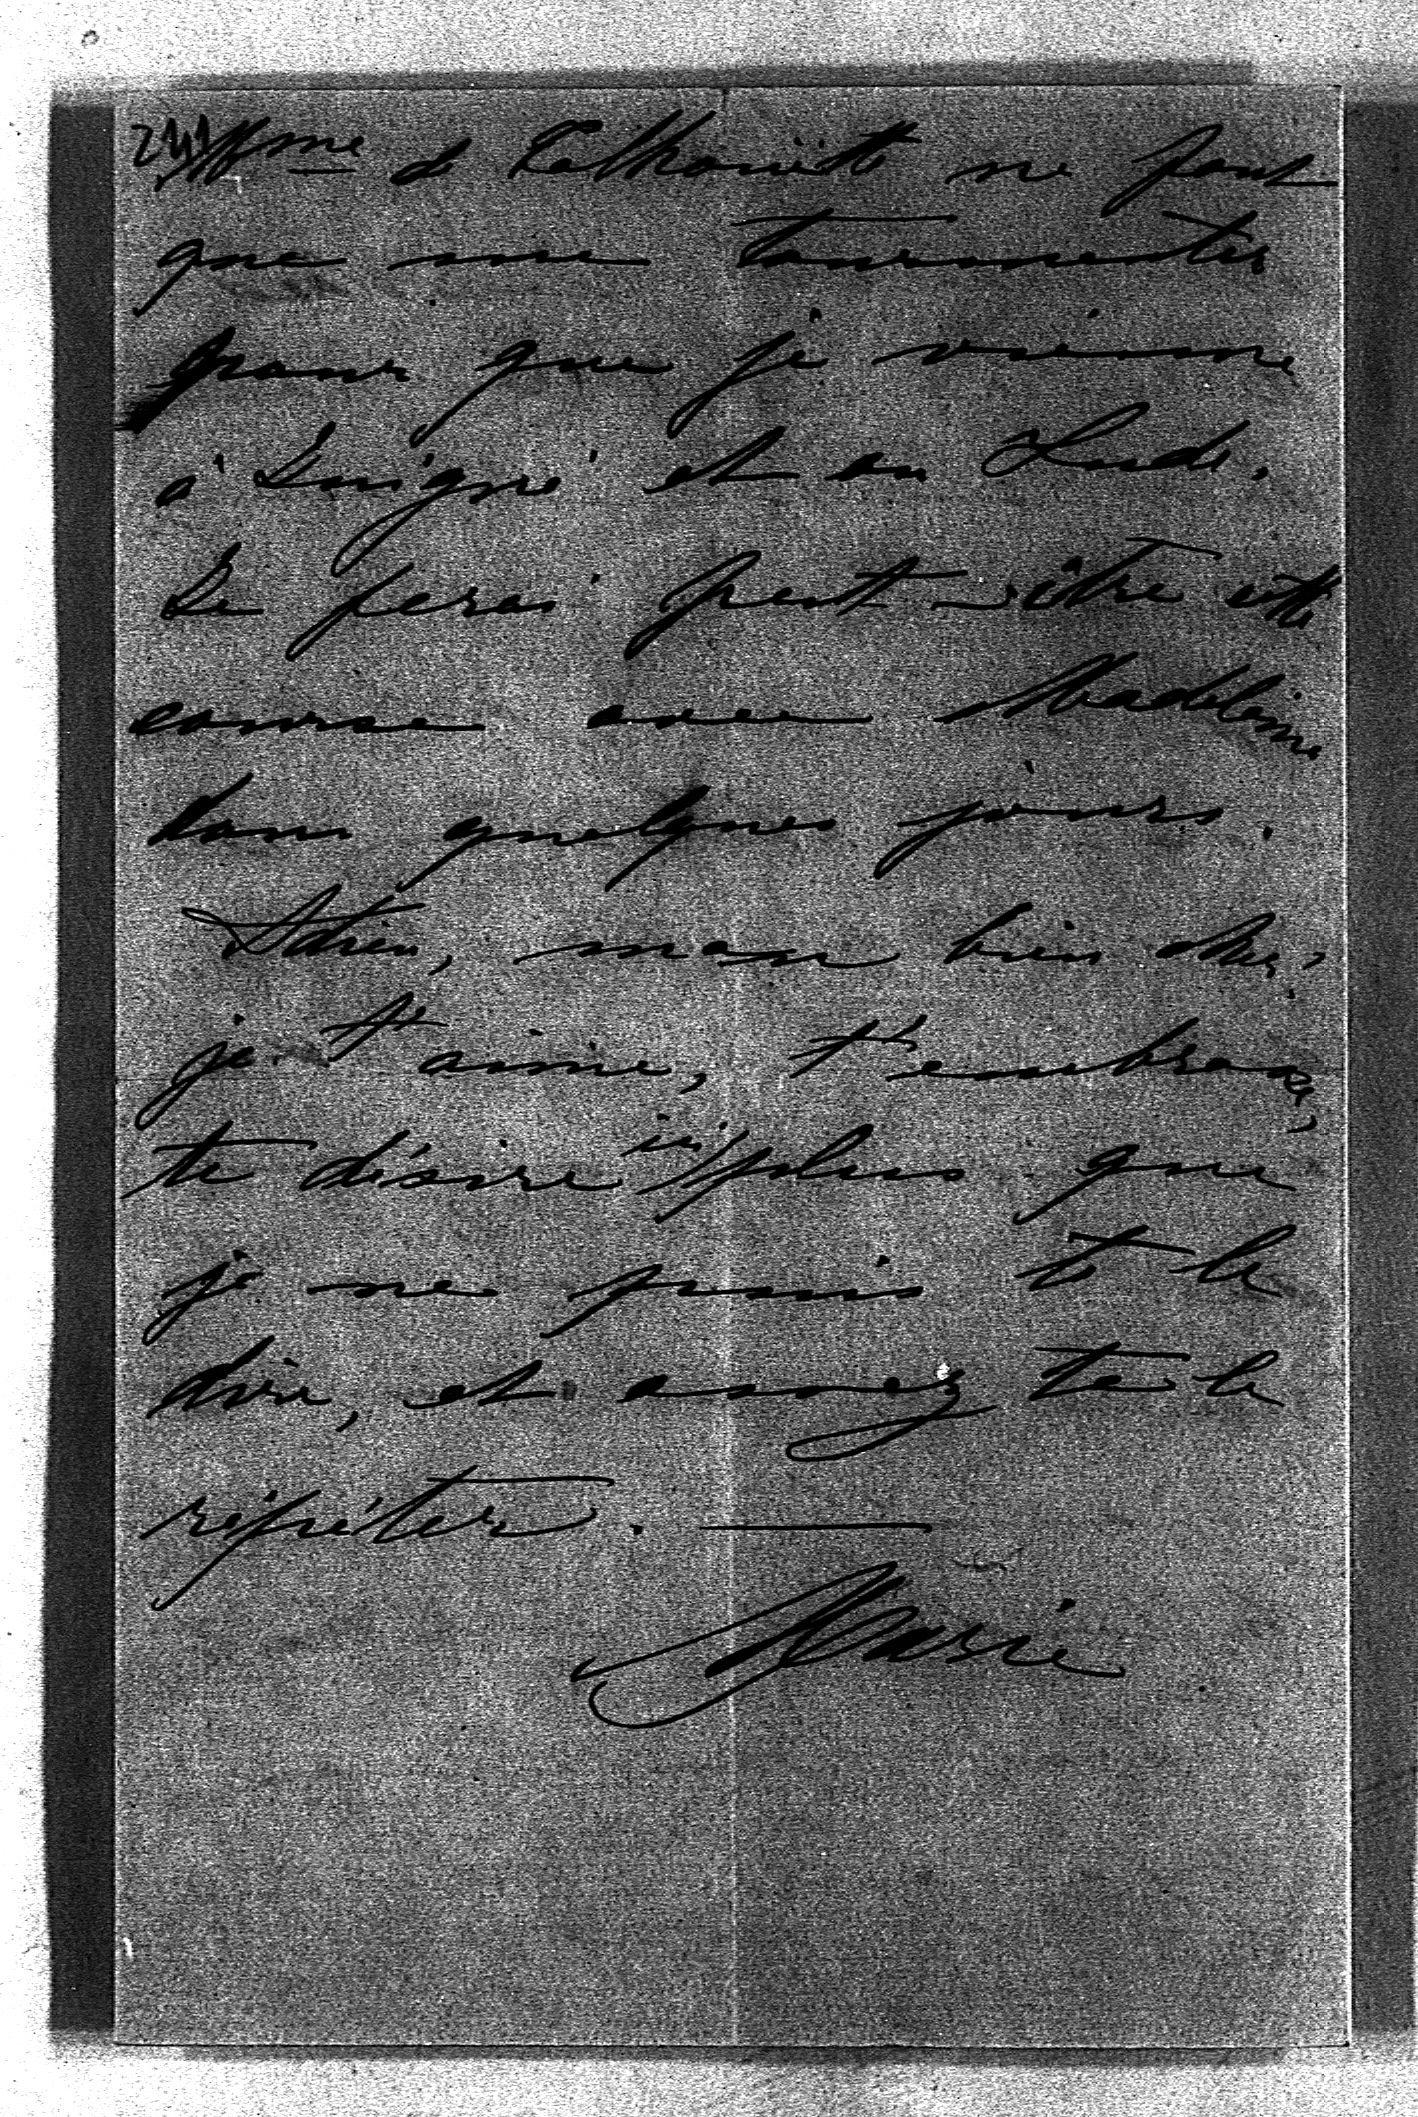 Mme de Talhouët ne fait
que me tourmenter
pour que je vienne
à Luigné et au Lude.
Je ferai peut-être cette
course avec Madeleine
dans quelques jours.
Adieu, mon bien cher,
je t'aime, t'embrasse,
te désire ici plus que
je ne puis te le
dire, et assez te le
répéter.
Marie